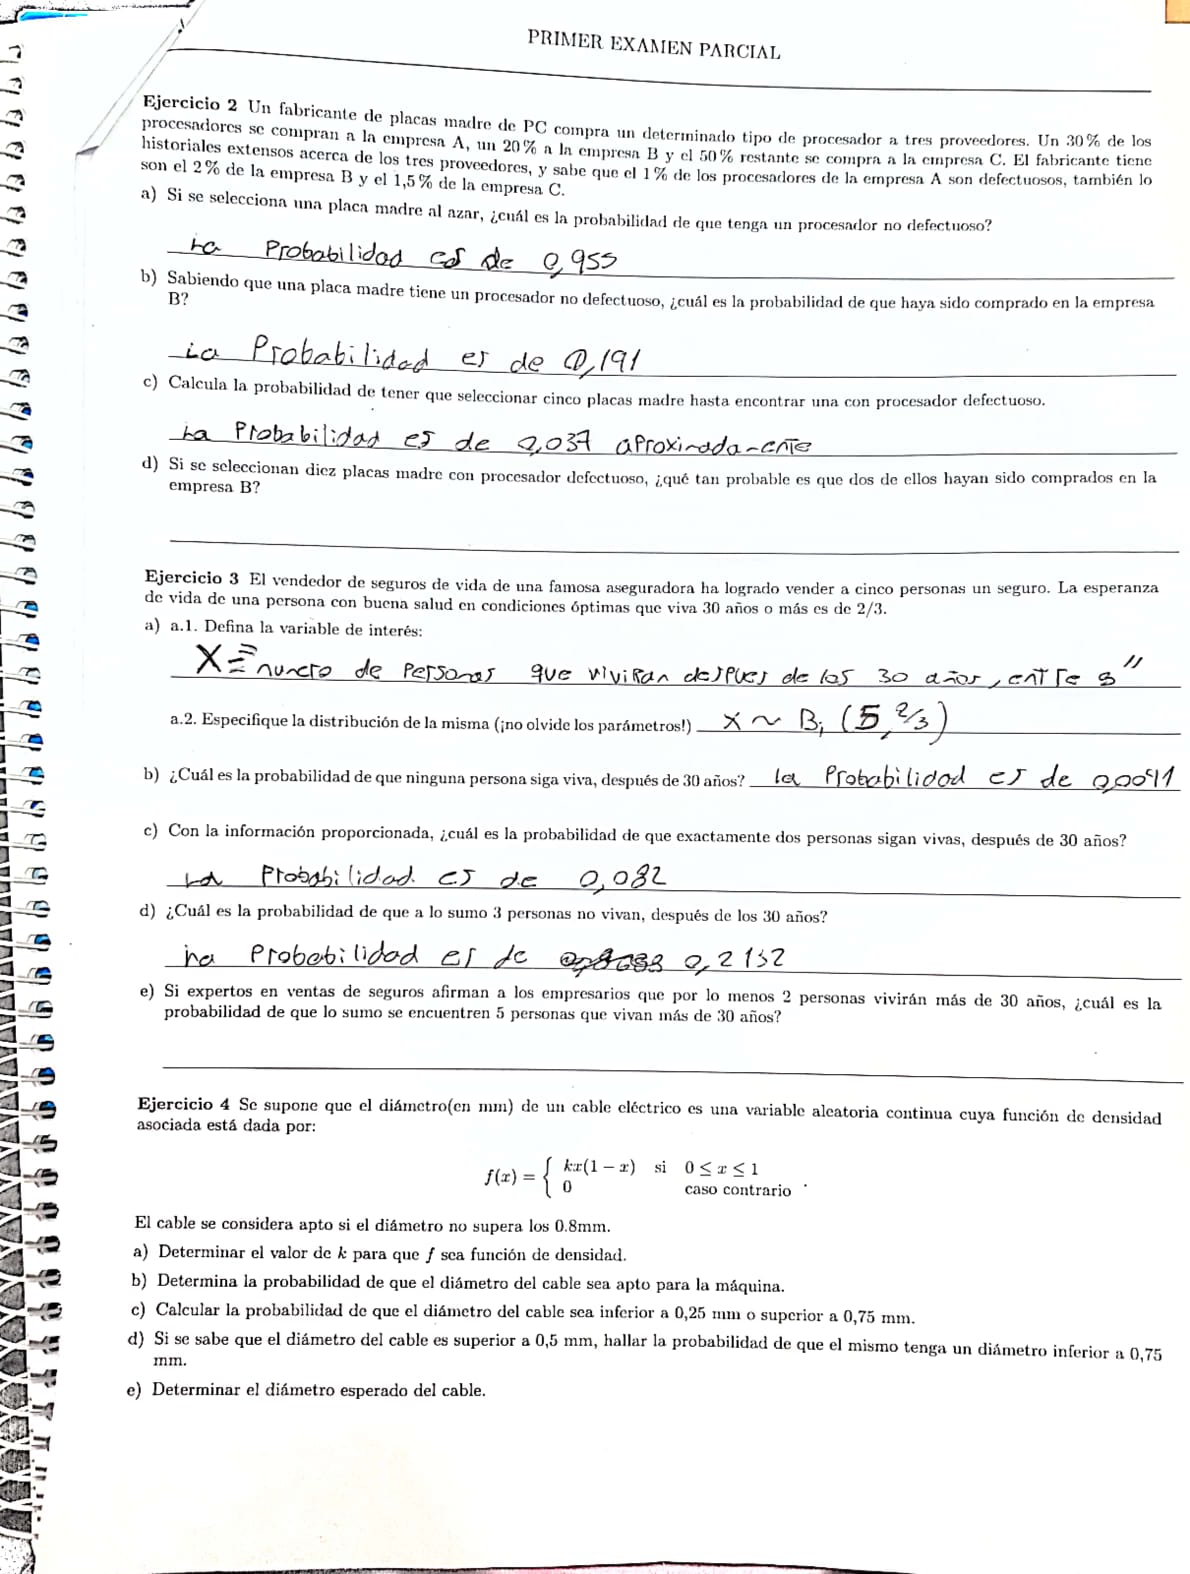 PRIMER EXAMEN PARCIAL
Ejercicio 2 Un fabricante de placas madre de PC compra un determinado tipo de procesador a tres proveedores. Un 30% de los
procesadores se compran a la empresa A, un 20% a la empresa B y el 50% restante se compra a la empresa C. El fabricante tiene
historiales extensos acerca de los tres proveedores, y sabe que el 1% de los procesadores de la empresa A son defectuosos, también lo
son el 2% de la empresa B y el 1,5% de la empresa C.
a) Si se selecciona una placa madre al azar, ¿cuál es la probabilidad de que tenga un procesador no defectuoso?
La Probabilidad es de 0,955
b) Sabiendo que una placa madre tiene un procesador no defectuoso, ¿cuál es la probabilidad de que haya sido comprado en la empresa
B?
La Probabilidad es de 0,191
c) Calcula la probabilidad de tener que seleccionar cinco placas madre hasta encontrar una con procesador defectuoso.
La Probabilidad es de 0,037 aproximadamente
d) Si se seleccionan diez placas madre con procesador defectuoso, ¿qué tan probable es que dos de ellos hayan sido comprados en la
empresa B?
Ejercicio 3 El vendedor de seguros de vida de una famosa aseguradora ha logrado vender a cinco personas un seguro. La esperanza
de vida de una persona con buena salud en condiciones óptimas que viva 30 años o más es de 2/3.
a) a.1. Defina la variable de interés:
X = "numero de personas que viviran despues de los 30 años, entre 5"
a.2. Especifique la distribución de la misma (¡no olvide los parámetros!) X ~ Bi (5, 2/3)
b) ¿Cuál es la probabilidad de que ninguna persona siga viva, después de 30 años? la Probabilidad es de 0,0041
c) Con la información proporcionada, ¿cuál es la probabilidad de que exactamente dos personas sigan vivas, después de 30 años?
La Probabilidad es de 0,082
d) ¿Cuál es la probabilidad de que a lo sumo 3 personas no vivan, después de los 30 años?
La Probabilidad es de 0,2132
e) Si expertos en ventas de seguros afirman a los empresarios que por lo menos 2 personas vivirán más de 30 años, ¿cuál es la
probabilidad de que lo sumo se encuentren 5 personas que vivan más de 30 años?
Ejercicio 4 Se supone que el diámetro(en mm) de un cable eléctrico es una variable aleatoria continua cuya función de densidad
asociada está dada por:
f(x) = { kx(1 − x) si 0 ≤ x ≤ 1
0 caso contrario .
El cable se considera apto si el diámetro no supera los 0.8mm.
a) Determinar el valor de k para que f sea función de densidad.
b) Determina la probabilidad de que el diámetro del cable sea apto para la máquina.
c) Calcular la probabilidad de que el diámetro del cable sea inferior a 0,25 mm o superior a 0,75 mm.
d) Si se sabe que el diámetro del cable es superior a 0,5 mm, hallar la probabilidad de que el mismo tenga un diámetro inferior a 0,75
mm.
e) Determinar el diámetro esperado del cable.